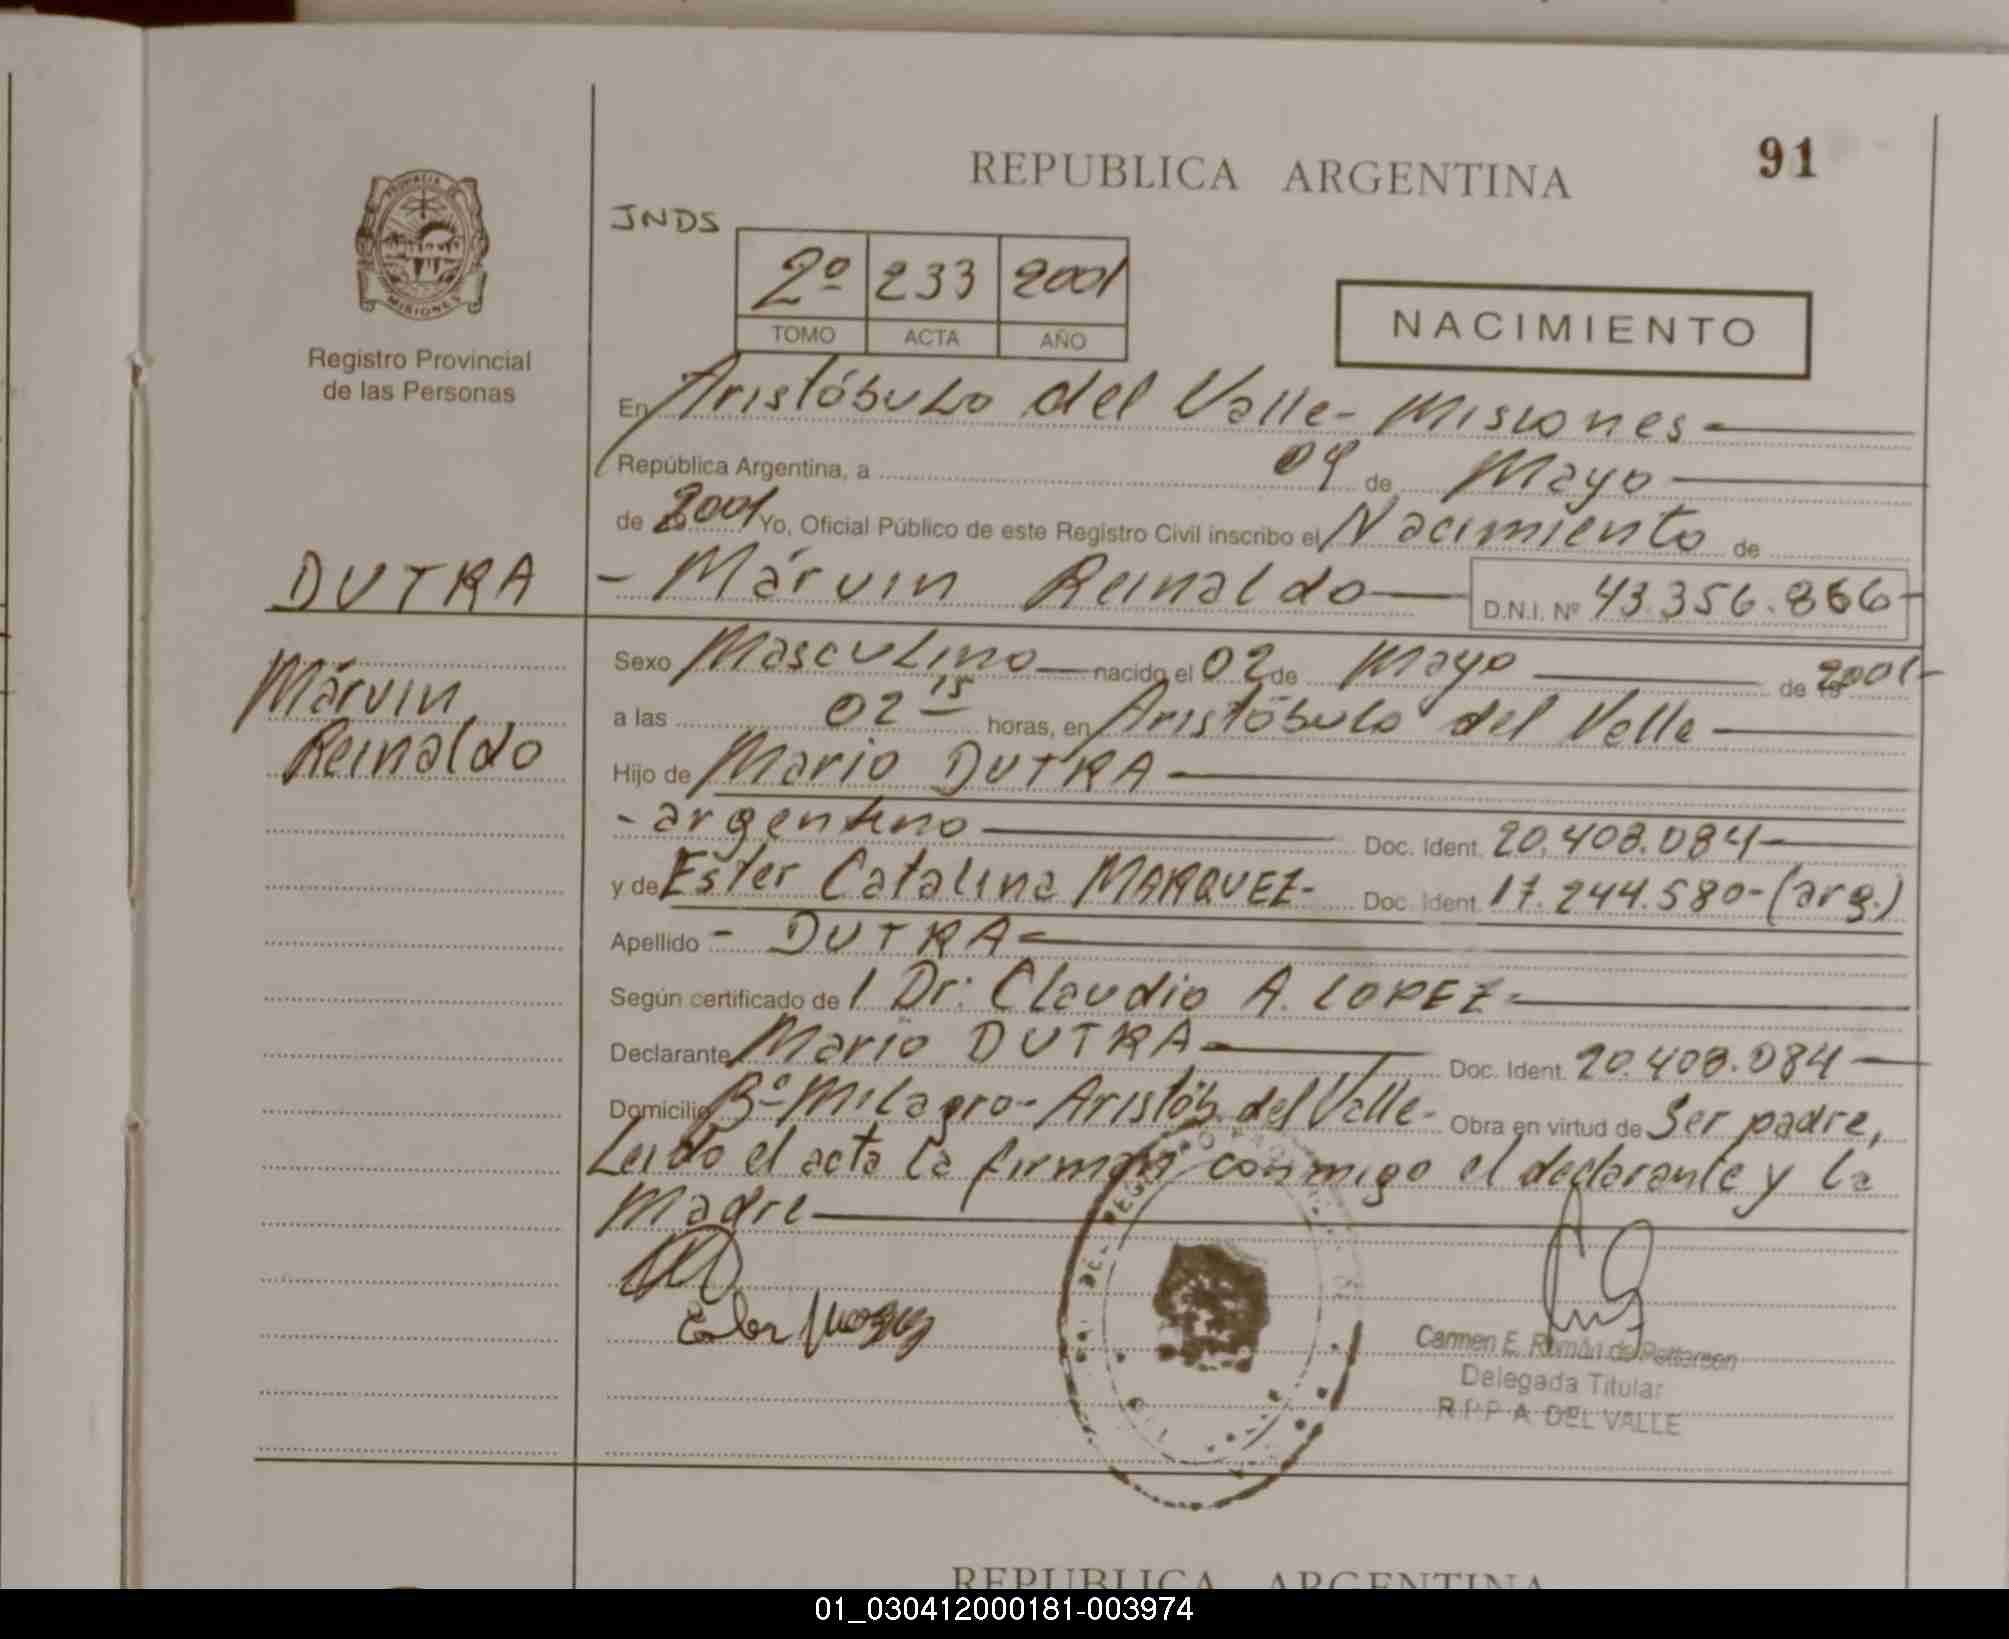 REPUBLICA ARGENTINA
91
JNDS
2º 233 2001
TOMO ACTA AÑO
NACIMIENTO
PROVINCIA DE
MISIONES
Registro Provincial
de las Personas
En Aristóbulo del Valle - Misiones
República Argentina, a 09 de Mayo
de 2001 Yo, Oficial Público de este Registro Civil inscribo el Nacimiento de
DUTRA
- Márvin Reinaldo D.N.I. Nº 43.356.866-
Márvin
Reinaldo
Sexo Masculino nacido el 02 de Mayo de 2001-
a las 02 15 horas, en Aristóbulo del Valle
Hijo de Mario DUTRA
- argentino Doc. Ident. 20.408.084
y de Ester Catalina MARQUEZ- Doc. Ident. 17.244.580-(arg.)
Apellido - DUTRA
Según certificado de l Dr: Claudio A. LOPEZ-
Declarante Mario DUTRA Doc. Ident. 20.408.084
Domicilio Bº Milagro- Aristób. del Valle- Obra en virtud de Ser padre,
Leido el acta la firman conmigo el declarante y la
Madre
Carmen E. Román de
Delegada Titular
R.P.P. A. DEL VALLE
REPUBLICA ARGENTINA
01_030412000181-003974